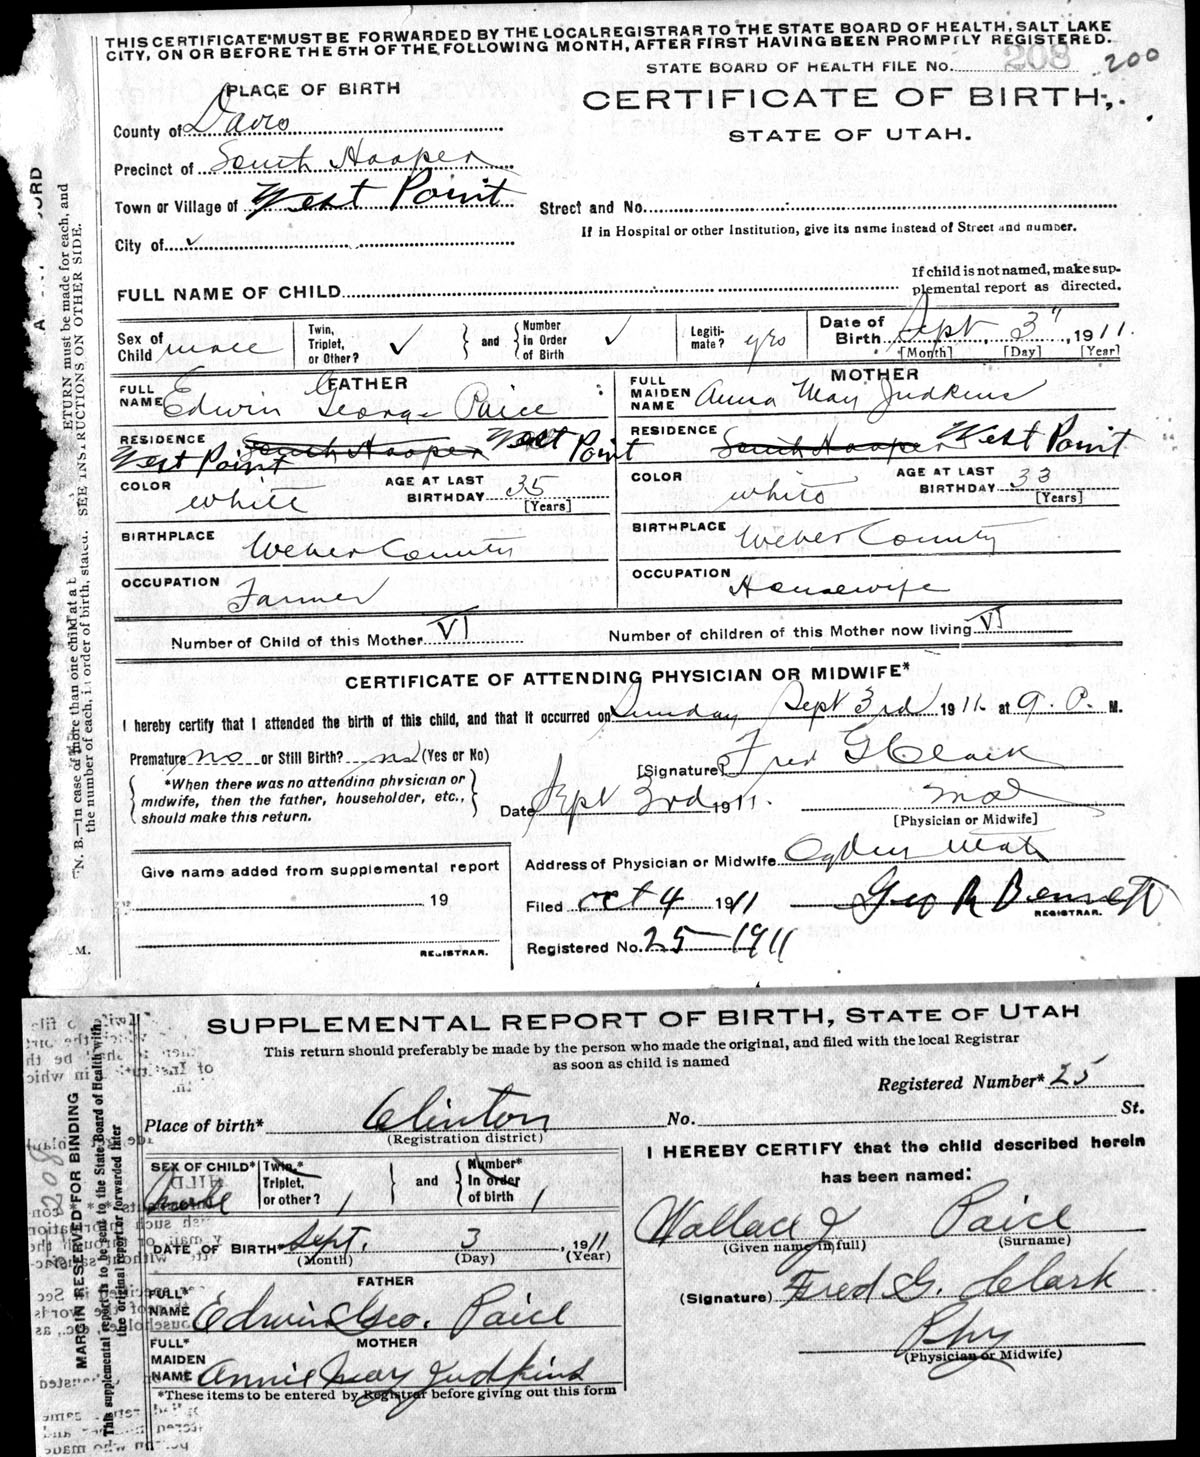 THIS CERTIFICATE MUST BE FORWARDED BY THE LOCAL REGISTRAR TO THE STATE BOARD OF HEALTH, SALT LAKE
CITY, ON OR BEFORE THE 5TH OF THE FOLLOWING MONTH, AFTER FIRST HAVING BEEN PROMPTLY REGISTERED.
STATE BOARD OF HEALTH FILE NO. 208 200
PLACE OF BIRTH
CERTIFICATE OF BIRTH,
STATE OF UTAH.
County of Davis
Precinct of South Hooper
Town or Village of West Point
Street and No.
City of ✓
If in Hospital or other Institution, give its name instead of Street and number.
FULL NAME OF CHILD
If child is not named, make sup-
plemental report as directed.
Sex of Child male
Twin, Triplet, or Other? ✓
and
Number In Order of Birth ✓
Legiti-mate? yes
Date of Birth Sept 3" , 1911.
[Month] [Day] [Year]
FATHER
FULL NAME Edwin George Paice
MOTHER
FULL MAIDEN NAME Anna May Judkins
RESIDENCE South Hooper West Point
West Point
RESIDENCE South Hooper West Point
COLOR White
AGE AT LAST BIRTHDAY 35 [Years]
COLOR white
AGE AT LAST BIRTHDAY 33 [Years]
BIRTHPLACE Weber County
BIRTHPLACE Weber County
OCCUPATION Farmer
OCCUPATION Housewife
Number of Child of this Mother VI
Number of children of this Mother now living VI
CERTIFICATE OF ATTENDING PHYSICIAN OR MIDWIFE*
I hereby certify that I attended the birth of this child, and that it occurred on Sunday Sept 3rd 1911. at 9. P. M.
Premature no or Still Birth? no (Yes or No)
[Signature] Fred G Clark
*When there was no attending physician or
midwife, then the father, householder, etc.,
should make this return.
Date Sept 3rd 1911.
[Physician or Midwife]
Give name added from supplemental report
19
REGISTRAR.
Address of Physician or Midwife Ogden Utah
Filed Oct 4 1911 Geo R Bennett
REGISTRAR.
Registered No. 25-1911
RETURN must be made for each, and
SEE INSTRUCTIONS ON OTHER SIDE.
N. B.—In case of more than one child at a
the number of each, in order of birth, stated.
SUPPLEMENTAL REPORT OF BIRTH, STATE OF UTAH
This return should preferably be made by the person who made the original, and filed with the local Registrar
as soon as child is named
Registered Number* 25
Place of birth* Clinton
(Registration district)
No. St.
SEX OF CHILD* male
Twin,* Triplet, or other?
and
Number* In order of birth
DATE OF BIRTH* Sept. 3 , 1911
(Month) (Day) (Year)
FATHER
FULL* NAME Edwin Geo. Paice
MOTHER
FULL* MAIDEN NAME Annie May Judkins
*These items to be entered by Registrar before giving out this form
I HEREBY CERTIFY that the child described herein
has been named:
Wallace J Paice
(Given name in full) (Surname)
(Signature) Fred G. Clark
Phy
(Physician or Midwife)
MARGIN RESERVED FOR BINDING
This supplemental report is to be sent to the State Board of Health with
the original report or forwarded later